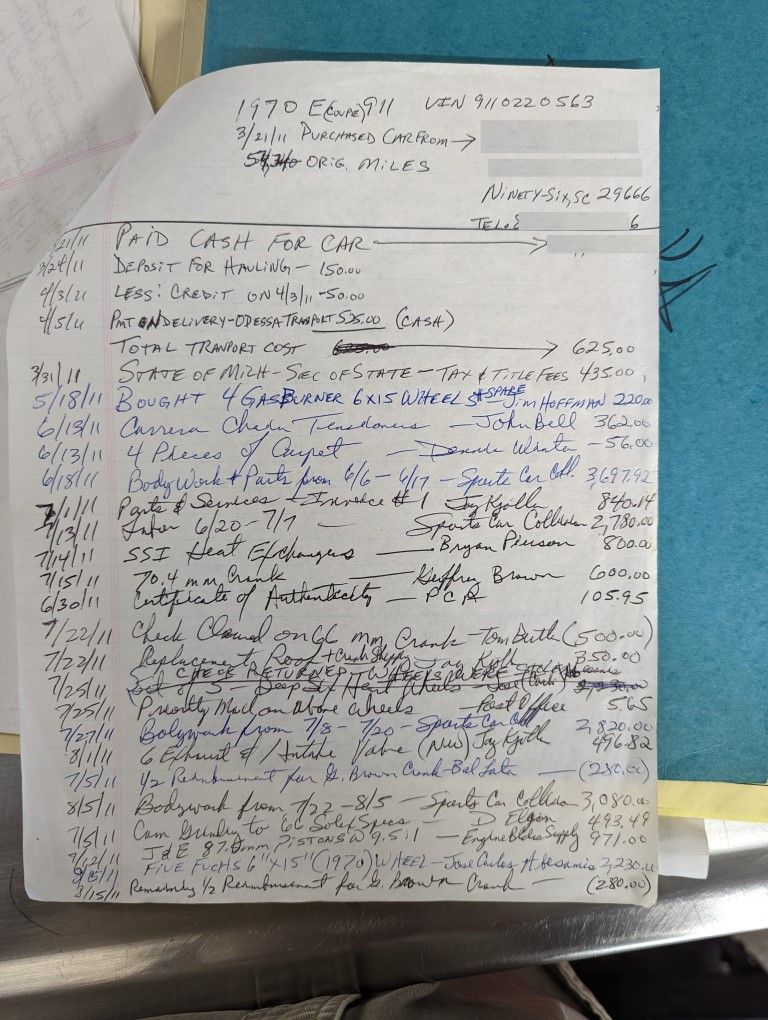 1970 E(COUPE) 911 VIN 9110220563
3/21/11 PURCHASED CAR FROM →
ORIG. MILES
NINETY-SIX, SC 29666
TEL. 6
/21/11 PAID CASH FOR CAR
3/24/11 DEPOSIT FOR HAULING - 150.00
4/3/11 LESS: CREDIT ON 4/3/11 -50.00
4/5/11 PMT ON DELIVERY-ODESSA TRANSPORT 525.00 (CASH)
TOTAL TRANPORT COST → 625.00
3/31/11 STATE OF MICH-SEC OF STATE - TAX & TITLE FEES 435.00
5/18/11 BOUGHT 4 GASBURNER 6X15 WHEELS + SPARE - JIM HOFFMAN 220.00
6/13/11 Carrera Chain Tensioners - John Bell 362.00
6/13/11 4 Pieces of Carpet - Dennis -56.00
6/18/11 Body Work + Parts from 6/6 - 6/17 - Sports Car Coll. 3,697.92
7/1/11 Parts & Services - Invoice #1 Jay 840.14
/13/11 Labor 6/20 - 7/7 - Sports Car Collision 2,780.00
7/14/11 SSI Heat Exchangers - Bryan 800.00
7/15/11 70.4 mm Crank - Geoffrey Brown 600.00
6/30/11 Certificate of Authenticity - PCA 105.95
7/22/11 Check Cleared on 66 mm Crank - Tom (500.00)
7/22/11 Replacement Roof + Crank Shipping Jay 350.00
CHECK RETURNED WHEELS WERE
7/25/11 Set of 5 - Deep Six Heart Wheels - Jose (Cash)
7/25/11 Priority Mail on Above Wheels - Post Office 5.65
7/27/11 Bodywork from 7/8 - 7/20 - Sports Car Coll 2,820.00
8/1/11 6 Exhaust & Intake Valve (New) Jay 496.82
7/5/11 1/2 Reimbursement for G. Brown Crank - (280.00)
8/5/11 Bodywork from 7/22 - 8/5 - Sports Car Collision 3,080.00
7/5/11 Cam Grinding to 66 Solex Specs - D Elgin 493.49
7/12/11 J & E 87.5mm PISTONS W 9.5:1 - Engine Bldrs Supply 971.00
FIVE FUCHS 6"X15" (1970) WHEEL - Jose Carlos 2,230.00
3/15/11 Remaining 1/2 Reimbursement for G. Brown Crank - (280.00)